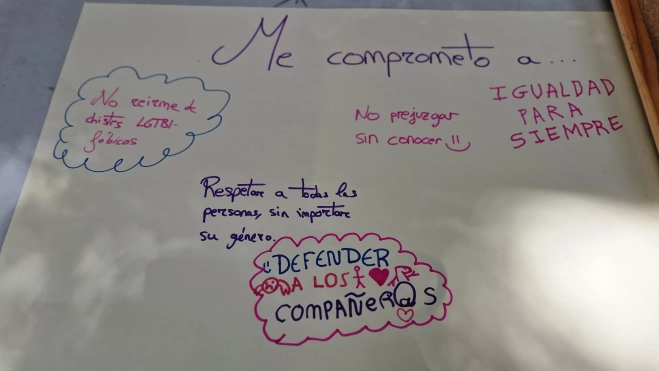 Me comprometo a...
No reirme de
chistes LGTBI-
fóbicos
No prejuzgar
sin conocer
IGUALDAD
PARA
SIEMPRE
Respetar a todas las
personas, sin importar
su género.
DEFENDER
A LOS
COMPAÑER@S